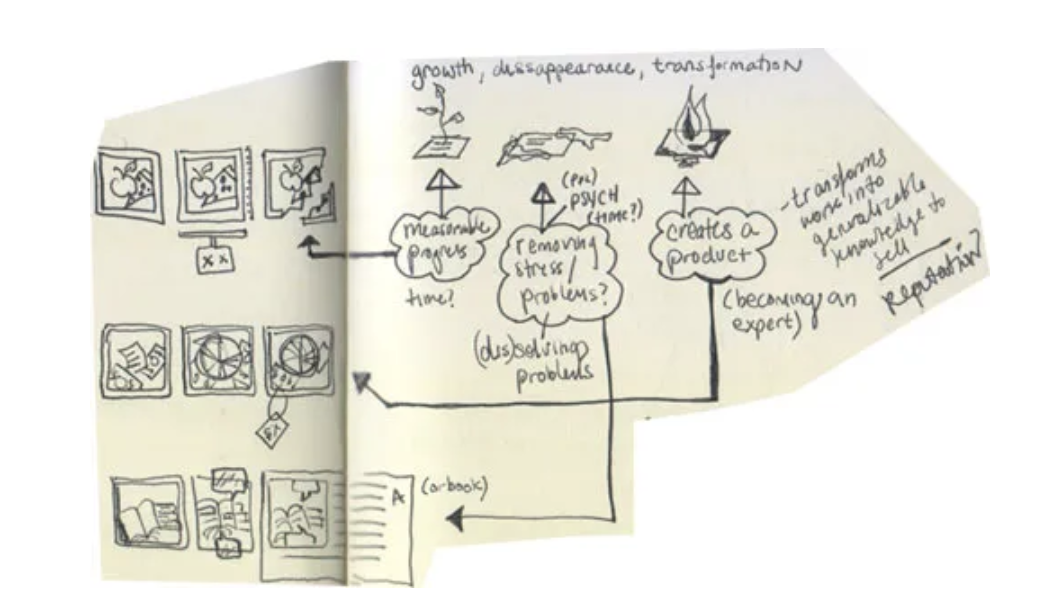 growth, dissappearance, transformation
measorable
progress
time?
(PPL)
PSYCH
(time?)
removing
stress/
problems?
(dis)solving
problems
creates a
product
(becoming an
expert)
-transforms
work into
generalizable
knowledge to
sell
reputation?
X X
$X
A
(or book)